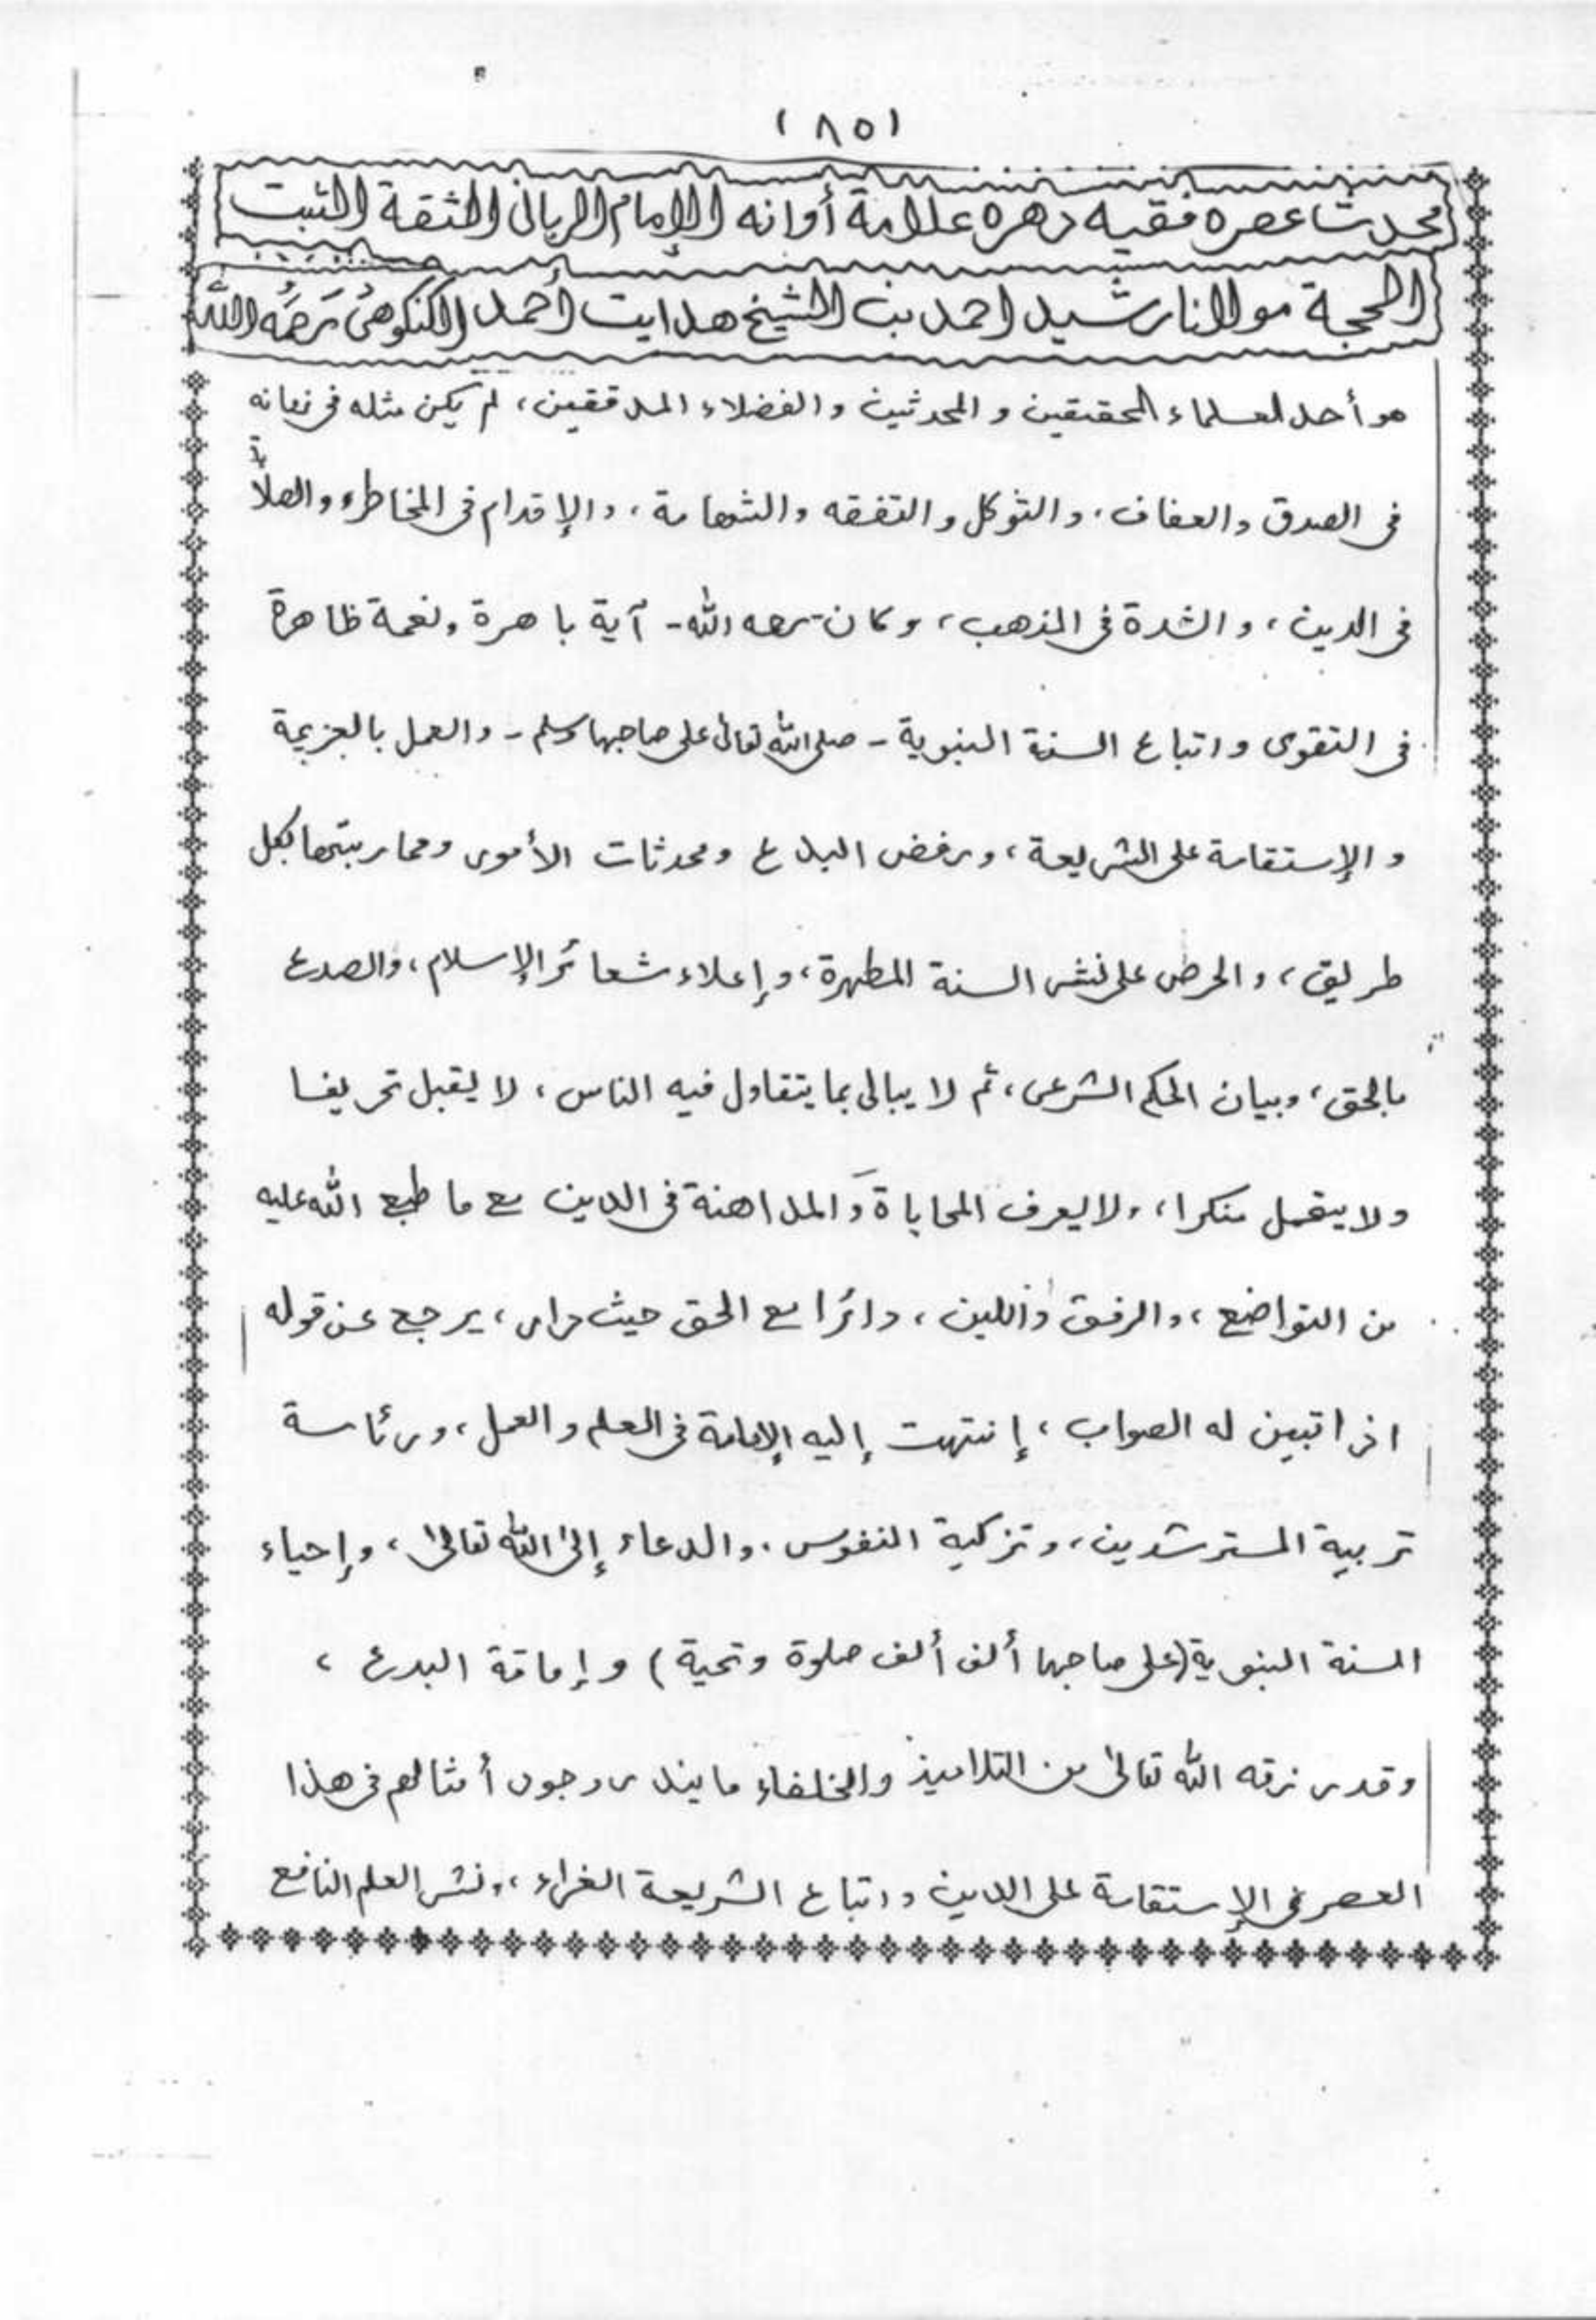 (٨٥)
محدث عصره فقيه دهره علامة أوانه الإمام الرباني الثقة الثبت
الحجة مولانا رشيد احمد بن الشيخ هدايت أحمد الكنكوهى رَحِمَهُ الله
هو أحد العلماء المحققين و المحدثين والفضلاء المدققين، لم يكن مثله فى زمانه
فى الصدق والعفاف، والتوكل والتفقه والشهامة، والإقدام فى المخاطر، والصلابة
فى الدين، والشدة فى المذهب، وكان -رحمه الله- آية باهرة ونعمة ظاهرة
فى التقوى واتباع السنة النبوية - صلى الله تعالى على صاحبها وسلم - والعمل بالعزيمة
و الإستقامة على الشريعة، ورفض البدع ومحدثات الأمور ومحاربتها بكل
طريق، والحرص على نشر السنة المطهرة، وإعلاء شعائر الإسلام، والصدع
بالحق، وبيان الحكم الشرعى، ثم لا يبالى بما يتقاول فيه الناس، لا يقبل تحريفا
ولا يتحمل منكرا، ولا يعرف المحاباة والمداهنة فى الدين مع ما طبع الله عليه
من التواضع، والرفق واللين، دائرا مع الحق حيث دار، يرجع عن قوله
اذا تبين له الصواب، إنتهت إليه الإمامة فى العلم والعمل، ورئاسة
تربية المسترشدين، وتزكية النفوس، والدعاء إلى الله تعالى، وإحياء
السنة النبوية (على صاحبها ألف ألف صلوة وتحية) وإماتة البدع،
وقد رزقه الله تعالى من التلاميذ والخلفاء ما يندر وجود أمثالهم فى هذا
العصر فى الإستقامة على الدين واتباع الشريعة الغراء، ونشر العلم النافع